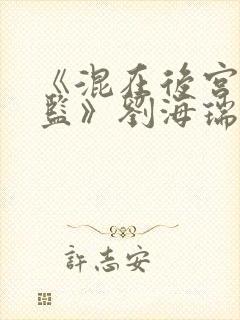 《混在後宮
監》劉海瑞
許志安